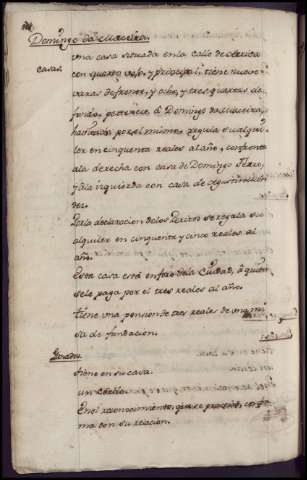 Domingo da
casas.
Una casa situada en la calle de
con quarto vajo, y principal, tiene nueve
varas de frente, y ocho, y tres quartas de
fondo, pertenece a Domingo da
havitada por el mismo, regula su alqui
ler en cinquenta reales al año, confronta
a la derecha con casa de Domingo
y a la izquierda con casa de
Por la declaracion de los Peritos se regula su al
quiler en cinquenta y cinco reales al
año.
Esta casa está en la Ciudad, a quien
se le paga por el tres reales al año.
tiene una pension de tres reales de una mi
sa de fundacion.
Ganado
tiene en su casa.
un
En el reconocimiento, que se practicó, confor
ma con su relacion.